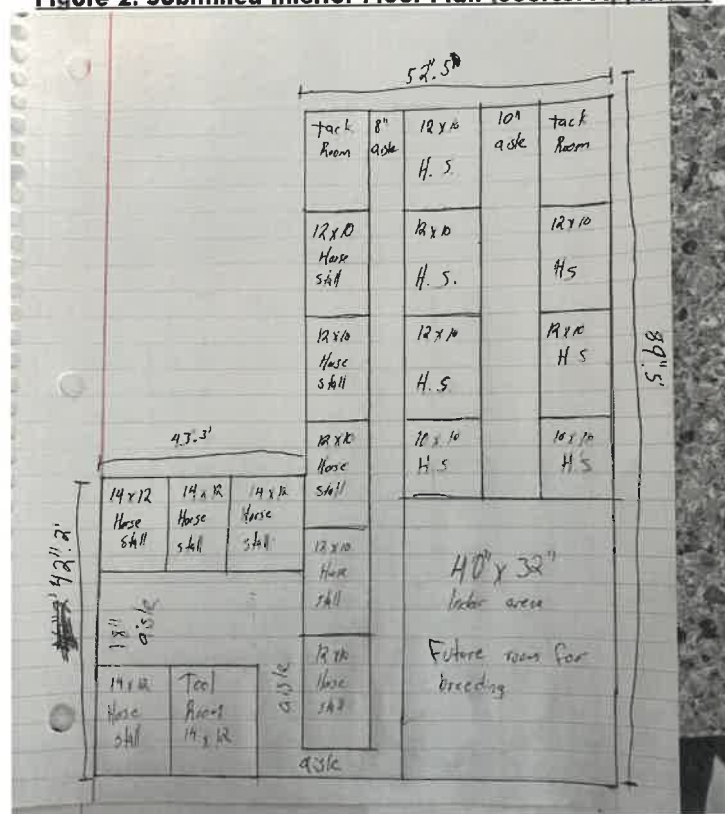 Figure 2: Submitted Interior Floor Plan
52.5"
tack
Room
8"
aisle
12 x 10
H. S.
10"
aisle
tack
Room
12 x 10
Horse
stall
12 x 10
H. S.
12 x 10
HS
12 x 10
Horse
stall
12 x 10
H. S.
12 x 10
H S
89".5'
43.3'
12 x 10
Horse
stall
10 x 10
H S
10 x 10
H S
14 x 12
Horse
stall
14 x 12
Horse
stall
14 x 12
Horse
stall
42".2'
12 x 10
Horse
stall
40" x 32"
Indor arena
18"
aisle
Future room for
breeding
14 x 12
Horse
stall
Tool
Room
14 x 12
aisle
12 x 10
Horse
stall
aisle